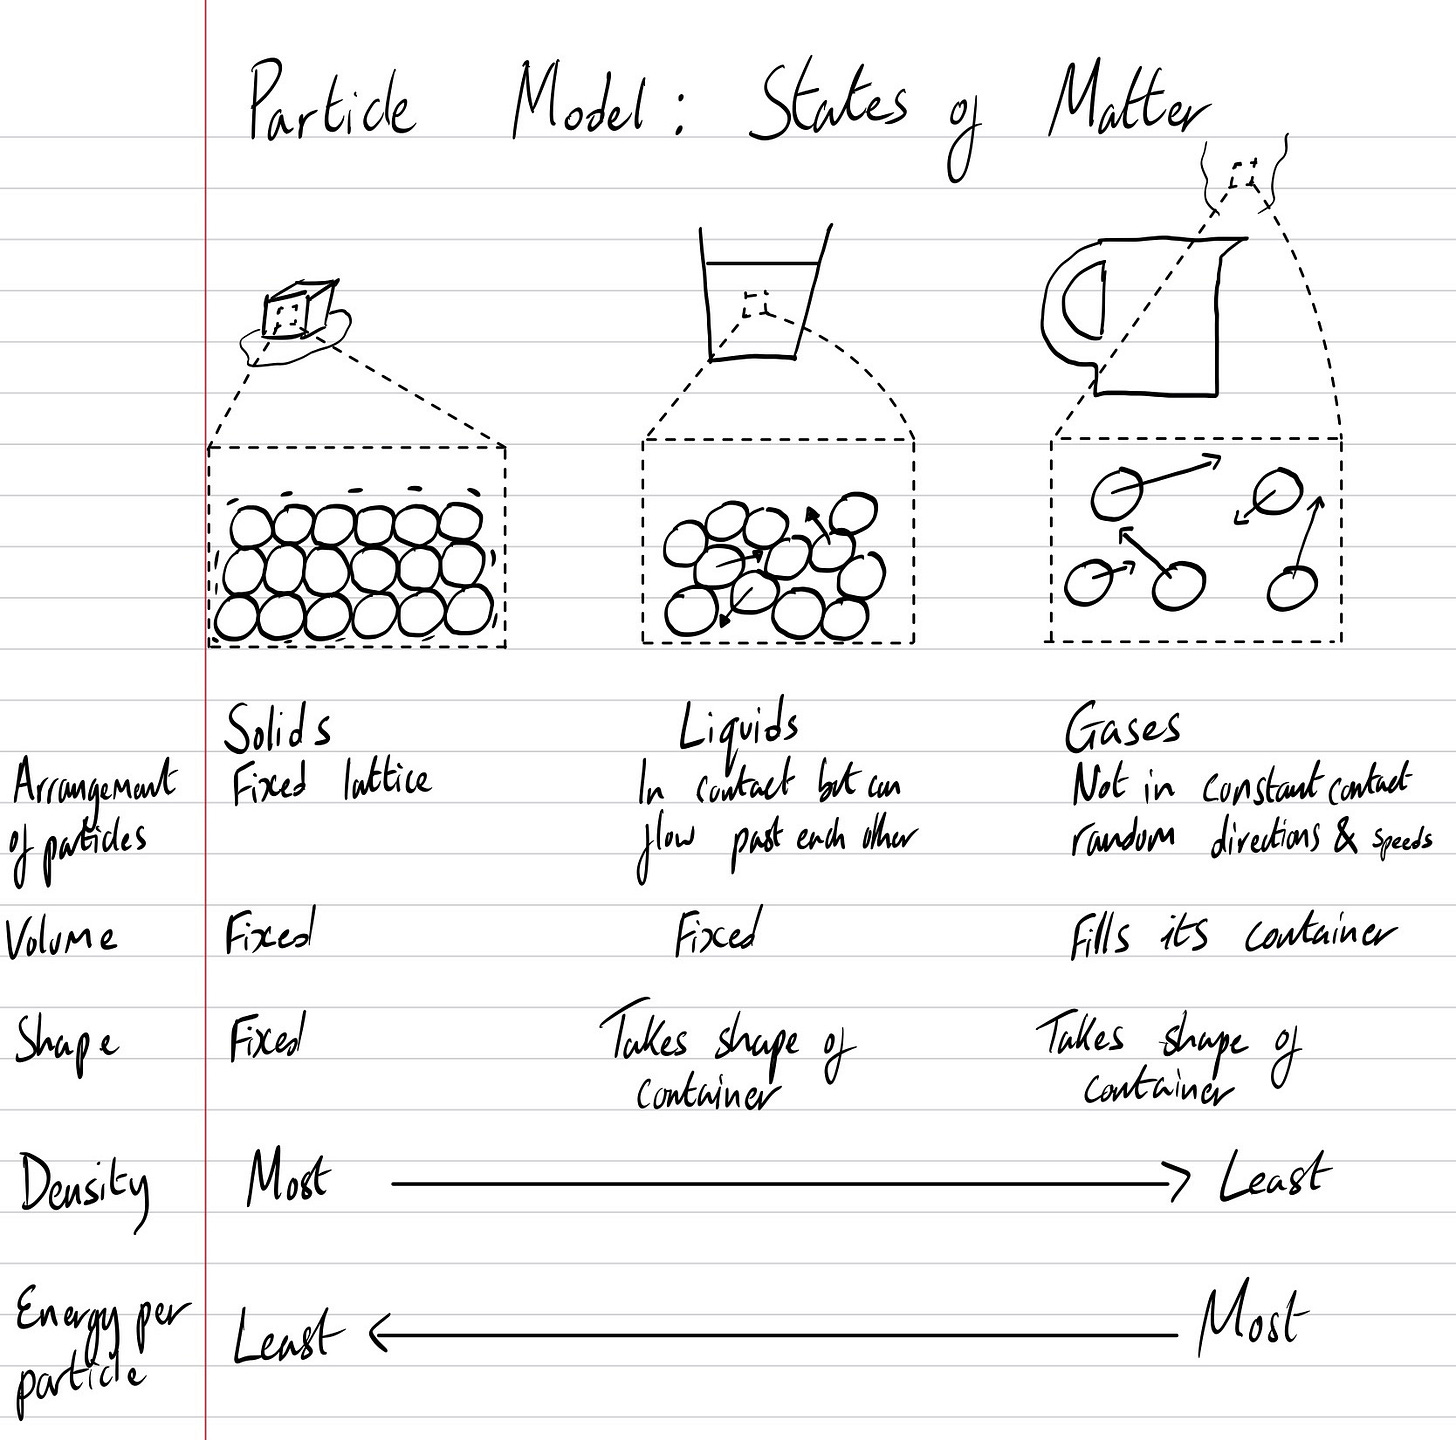 Particle Model: States of Matter
Solids Liquids Gases
Arrangement Fixed lattice In contact but can Not in constant contact
of particles flow past each other random directions & speeds
Volume Fixed Fixed Fills its container
Shape Fixed Takes shape of Takes shape of
container container
Density Most Least
Energy per Least Most
particle